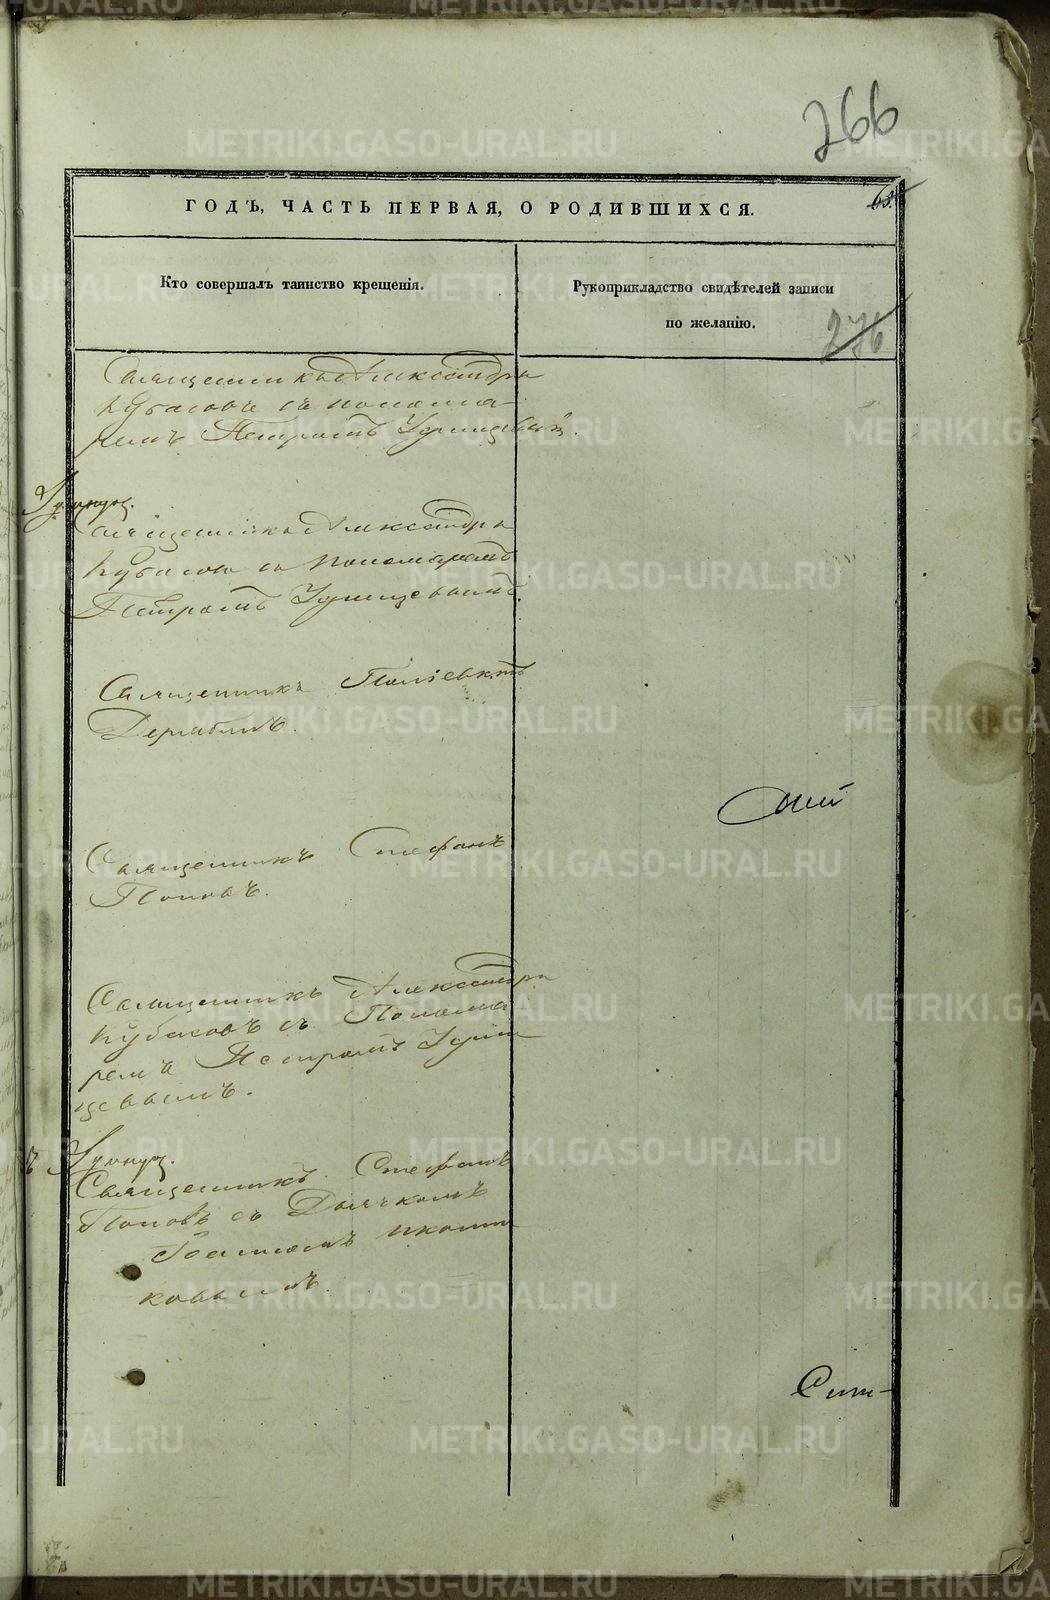 266
63.
ГОДЪ, ЧАСТЬ ПЕРВАЯ, О РОДИВШИХСЯ.
Кто совершалъ таинство крещенія.
Рукоприкладство свидѣтелей записи
по желанію.
276
Священникъ Александръ
Кубасовъ съ понома
ремъ Петромъ
Священникъ Александръ
Кубасовъ съ Пономаремъ
Петромъ
Священникъ Поліевктъ
Дерябинъ.
Священникъ Стефанъ
Поповъ.
Священникъ Александръ
Кубасовъ съ Понома
ремъ Петромъ
цевымъ.
Священникъ Стефанъ
Поповъ съ Дьячкомъ
ковымъ.
METRIKI.GASO-URAL.RU